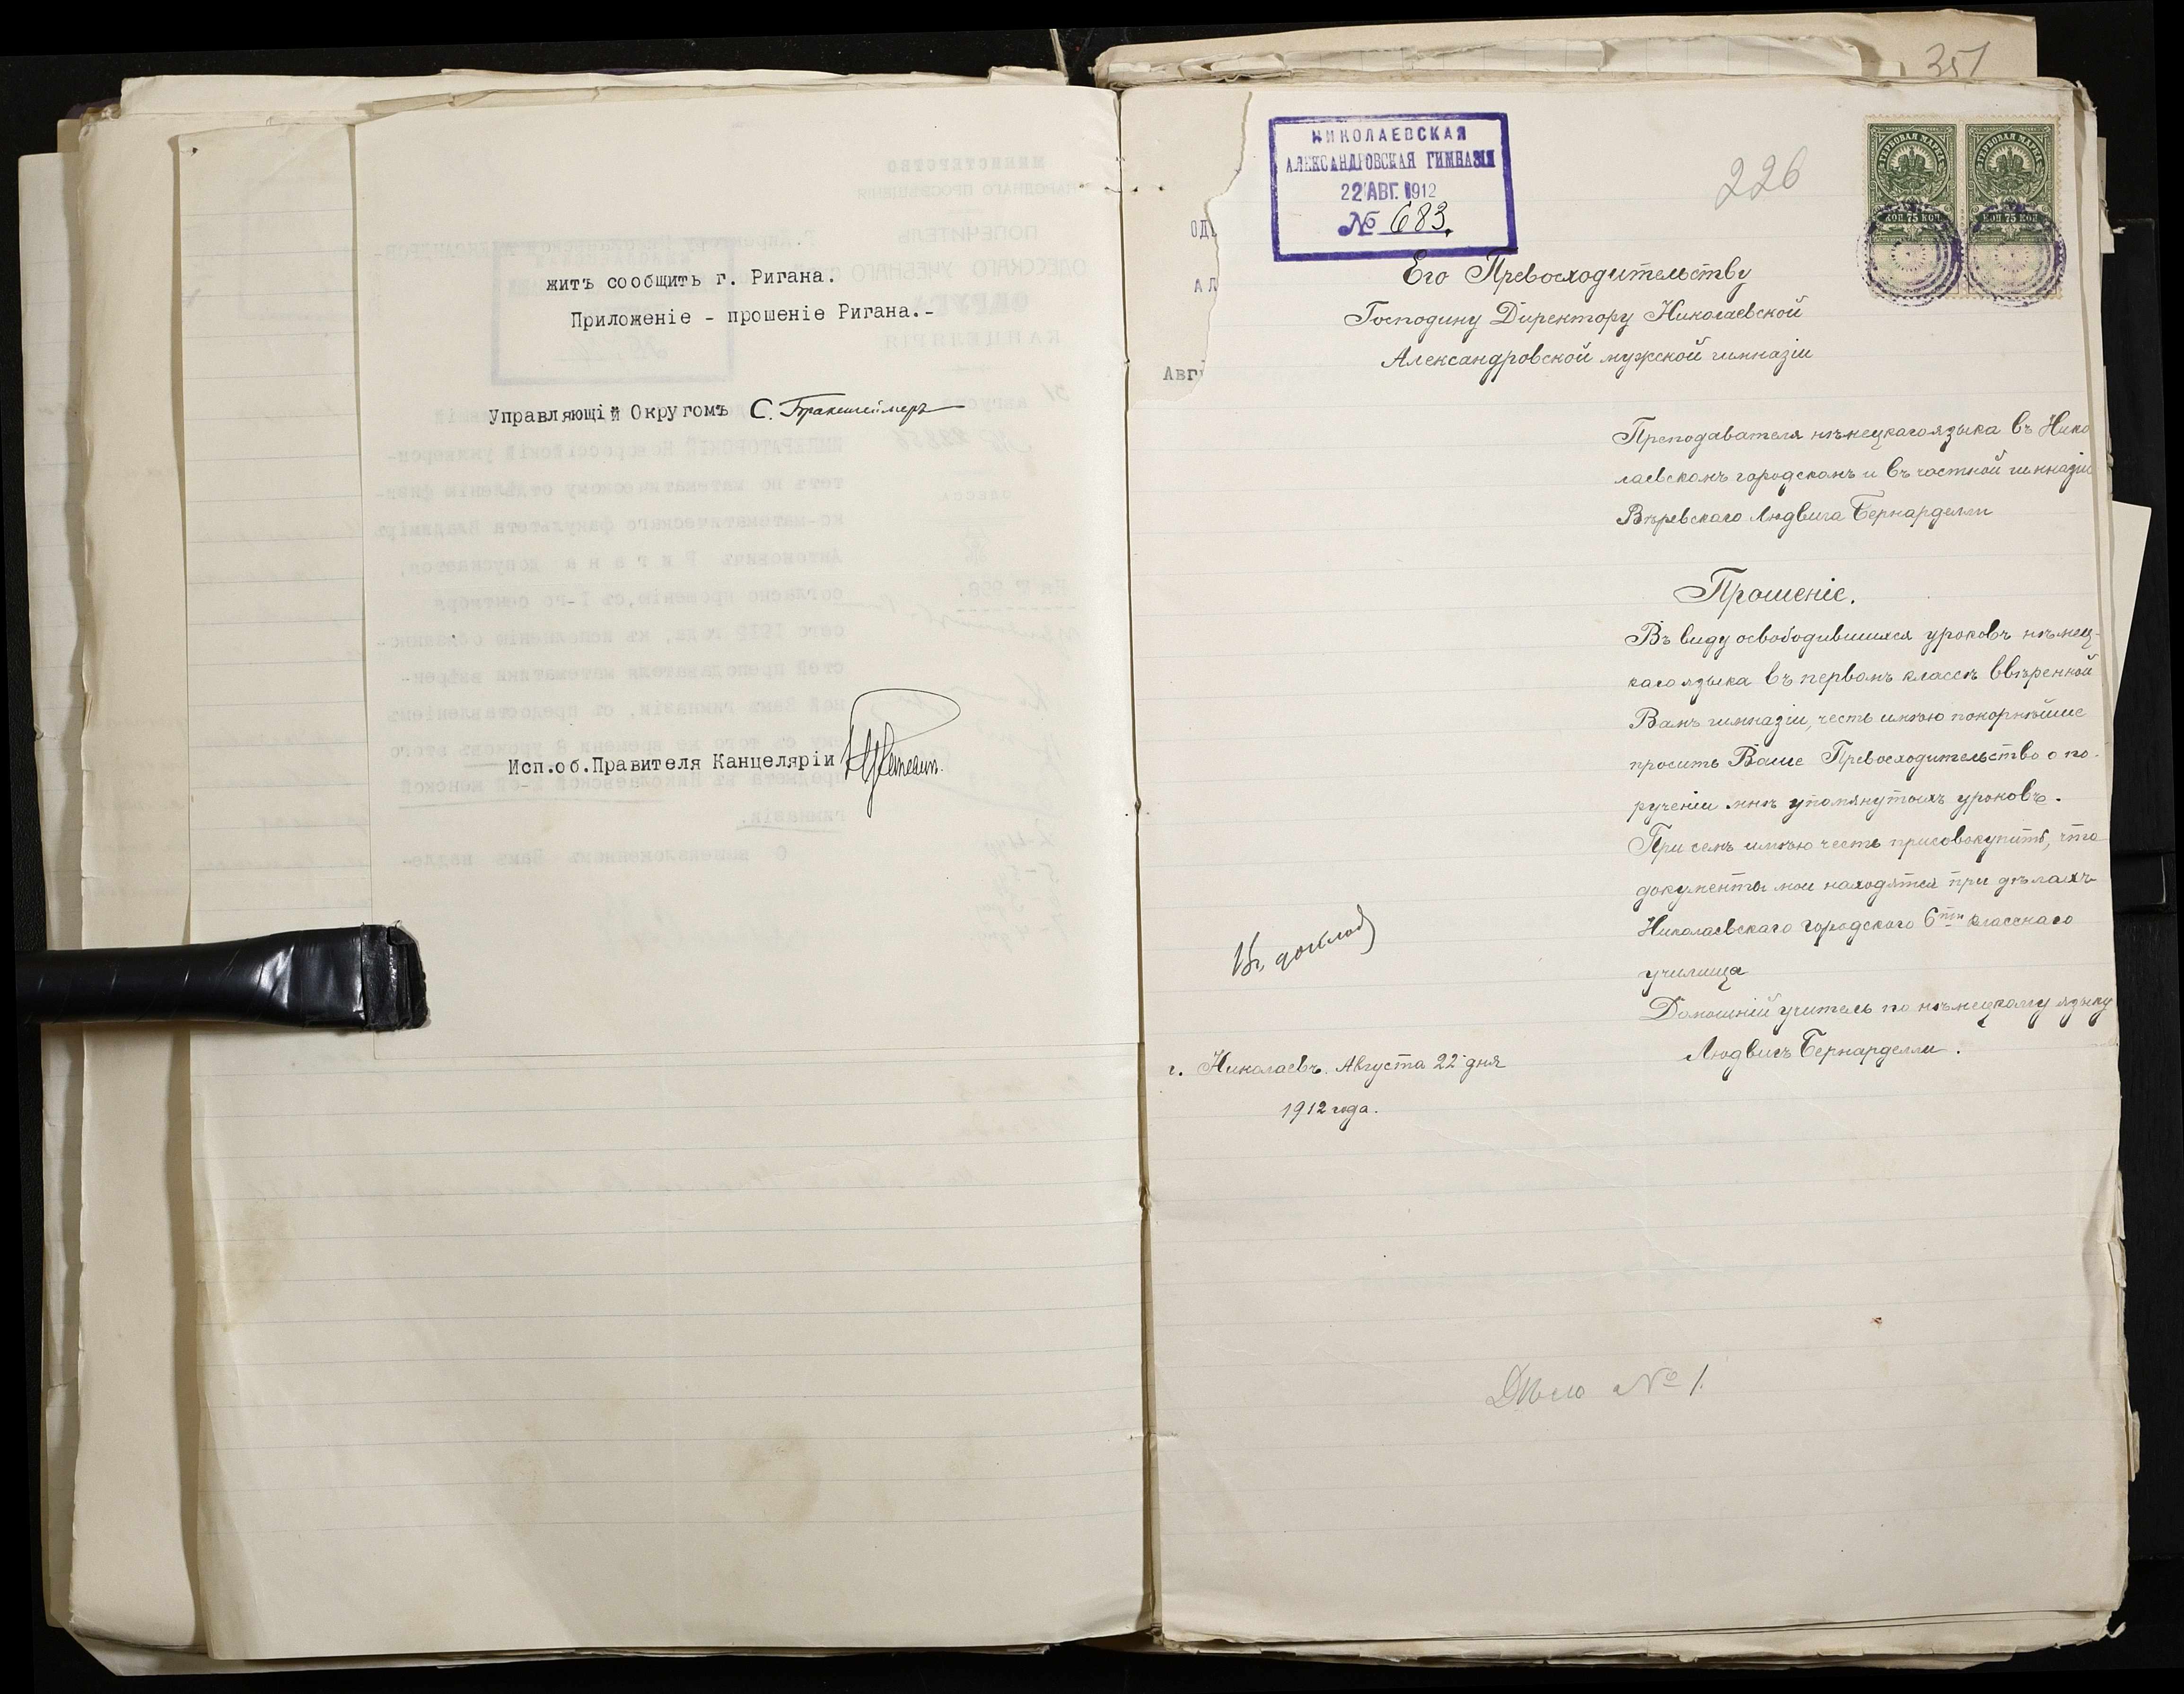 жить сообщить г. Ригана.
Приложеніе - прошеніе Ригана.-
Управляющій Округомъ С.
Исп.об.Правителя Канцеляріи
351
НИКОЛАЕВСКАЯ
АЛЕКСАНДРОВСКАЯ ГИМНАЗІЯ
22 АВГ. 1912
№ 683.
226
ГЕРБОВАЯ МАРКА
ГЕРБОВАЯ МАРКА
КОП 75 КОП
КОП 75 КОП
Его Превосходительству
Господину Директору Николаевской
Александровской мужской гимназіи
Преподавателя нѣмецкаго языка въ Нико
лаевскомъ городскомъ и въ частной гимназіи
Вѣревскаго Людвига Бернарделли
Прошеніе.
Въ виду освободившихся уроковъ нѣмец-
каго языка въ первомъ классѣ ввѣренной
Вамъ гимназіи, честь имѣю покорнѣйше
просить Ваше Превосходительство о по-
рученіи мнѣ упомянутыхъ уроковъ.
При семъ имѣю честь присовокупить, что
документы мои находятся при дѣлахъ
Николаевскаго городского 6ти класснаго
училища
Домашній учитель по нѣмецкому языку
Людвигъ Бернарделли.
Къ докладу
г. Николаевъ. Августа 22 дня
1912 года.
Дѣло № 1.